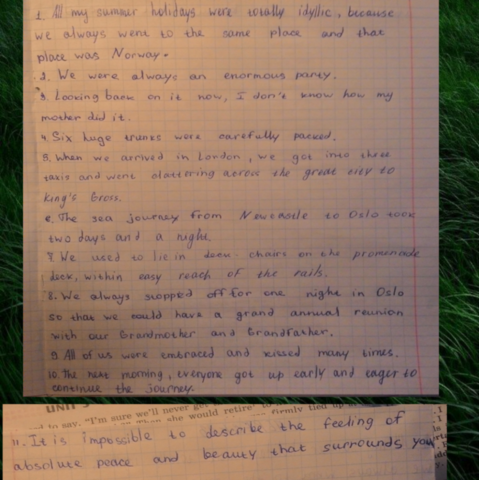 1. All my summer holidays were totally idyllic, because
we always went to the same place and that
place was Norway.
2. We were always an enormous party.
3. Looking back on it now, I don't know how my
mother did it.
4. Six huge trunks were carefully packed.
5. When we arrived in London, we got into three
taxis and went clattering across the great city to
King's Cross.
6. The sea journey from Newcastle to Oslo took
two days and a night.
7. We used to lie in deck-chairs on the promenade
deck, within easy reach of the rails.
8. We always stopped off for one night in Oslo
so that we could have a grand annual reunion
with our Grandmother and Grandfather.
9. All of us were embraced and kissed many times.
10. The next morning, everyone got up early and eager to
continue the journey.
UNIT
to say. "I'm sure we'll never
she would retire" firmly tied up
11. It is impossible to describe the feeling of
absolute peace and beauty that surrounds you